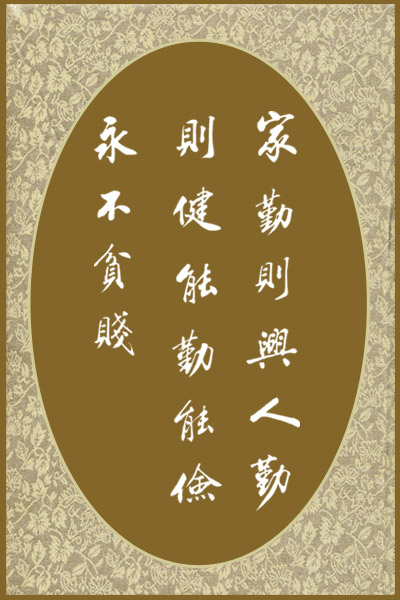 家勤則興人勤
則健能勤能儉
永不貧賤